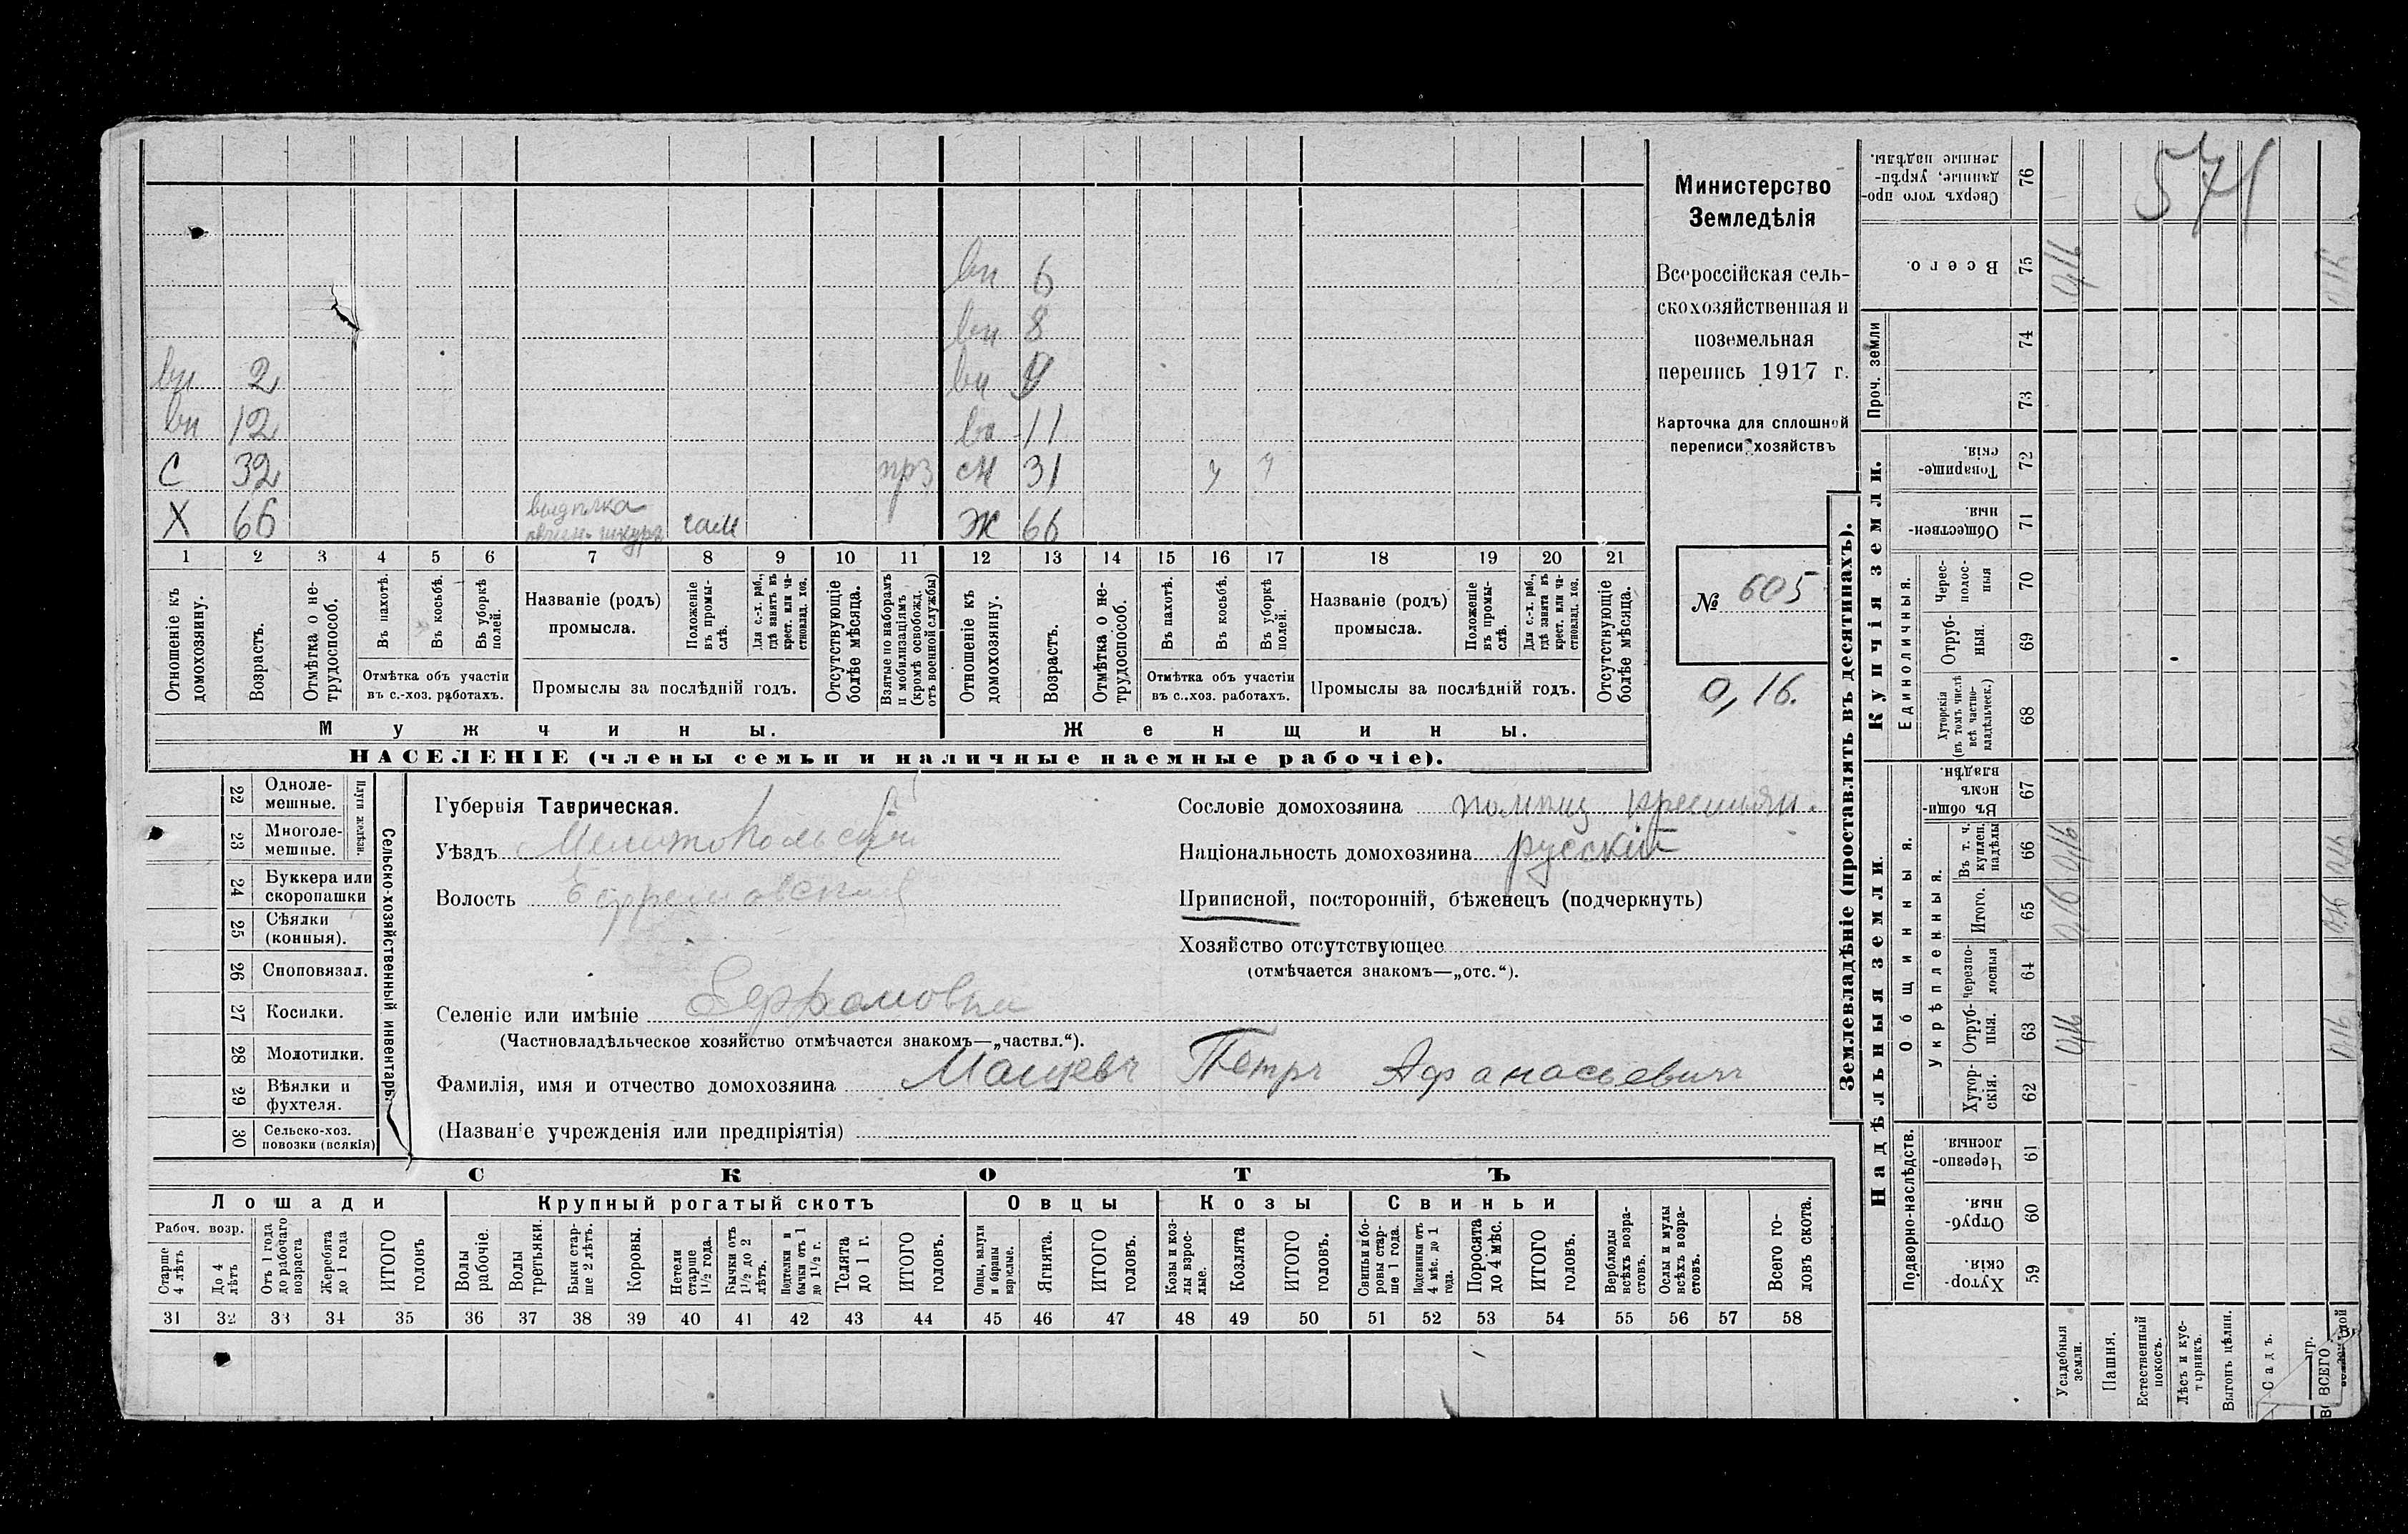 571
Министерство
Земледѣлія
Всероссійская сель-
скохозяйственная и
поземельная
перепись 1917 г.
Карточка для сплошной
переписи хозяйствъ
№ 605
0,16.
вн 6
вн 8
вн 2 вн 9
вн 12 вн 11
С 32 прз сн 31 ч ч
Х 66 выдѣлка
овчин. шкуръ сам Ж 66
1 2 3 4 5 6 7 8 9 10 11 12 13 14 15 16 17 18 19 20 21
Отношеніе къ домохозяину.
Возрастъ.
Отмѣтка о не-трудоспособ.
Въ пахотѣ.
Въ косьбѣ.
Въ уборкѣ полей.
Отмѣтка объ участіи
въ с.-хоз. работахъ.
Названіе (родъ)
промысла.
Положеніе въ промы-слѣ.
Для с.-х. раб., гдѣ занятъ въ крест. или ча-стновлад. хоз.
Промыслы за послѣдній годъ.
Отсутствующіе болѣе мѣсяца.
Взятые по наборамъ и мобилизаціямъ (кромѣ освобожд. отъ военной службы)
Отношеніе къ домохозяину.
Возрастъ.
Отмѣтка о не-трудоспособ.
Въ пахотѣ.
Въ косьбѣ.
Въ уборкѣ полей.
Отмѣтка объ участіи
въ с.-хоз. работахъ.
Названіе (родъ)
промысла.
Положеніе въ промы-слѣ.
Для с.-х. раб., гдѣ занята въ крест. или ча-стновлад. хоз.
Промыслы за послѣдній годъ.
Отсутствующіе болѣе мѣсяца.
Мужчины. Женщины.
НАСЕЛЕНІЕ (члены семьи и наличные наемные рабочіе).
Сельско-хозяйственный инвентарь.
Плуги желѣзн.
22 Одноле-
мешные.
23 Многоле-
мешные.
24 Буккера или
скоропашки
25 Сѣялки
(конныя).
26 Сноповязал.
27 Косилки.
28 Молотилки.
29 Вѣялки и
фухтеля.
30 Сельско-хоз.
повозки (всякія)
Губернія Таврическая.
Уѣздъ Мелитопольскій
Волость Ефремовская
Селеніе или имѣніе Ефремовка
(Частновладѣльческое хозяйство отмѣчается знакомъ—„частвл.“).
Фамилія, имя и отчество домохозяина Мащевъ Петръ Афанасьевичъ
(Названіе учрежденія или предпріятія)
Сословіе домохозяина крестьян.
Національность домохозяина русскій
Приписной, посторонній, бѣженецъ (подчеркнуть)
Хозяйство отсутствующее
(отмѣчается знакомъ—„отс.“).
СКОТЪ
Лошади Крупный рогатый скотъ Овцы Козы Свиньи
Рабоч. возр.
Старше 4 лѣтъ
До 4 лѣтъ
Отъ 1 года до рабочаго возраста
Жеребята до 1 года
ИТОГО головъ
Волы рабочіе.
Волы третьяки.
Быки стар-ше 2 лѣтъ.
Коровы.
Нетели старше 1½ года.
Бычки отъ 1½ до 2 лѣтъ.
Подтелки и бычки отъ 1 до 1½ г.
Телята до 1 г.
ИТОГО головъ.
Овцы, валухи и бараны взрослые.
Ягнята.
ИТОГО головъ.
Козы и коз-лы взрос-лые.
Козлята
ИТОГО головъ.
Свиньи и бо-ровы стар-ше 1 года.
Подсвинки отъ 4 мѣс. до 1 года.
Поросята до 4 мѣс.
ИТОГО головъ.
Верблюды всѣхъ возра-стовъ.
Ослы и мулы всѣхъ возра-стовъ.
Всего го-ловъ скота.
31 32 33 34 35 36 37 38 39 40 41 42 43 44 45 46 47 48 49 50 51 52 53 54 55 56 57 58
Землевладѣніе (проставлять въ десятинахъ).
Купчія земли.
Проч. земли
Единоличныя.
Надѣльныя земли.
Общинныя.
Укрѣпленныя.
Подворно-наслѣдств.
Сверхъ того про-данные, укрѣп-ленные надѣлы. 76
Всего. 75 0,16 0,16
74
73
Товарище-скія. 72
Обществен-ныя. 71
Черес-полос-ныя 70
Отруб-ныя. 69
Хуторскія (въ томъ числѣ всѣ частно-владѣльческ.) 68
Въ общин-номъ владѣн. 67
Въ т. ч. куплен. надѣлы 66 0,16 0,16
Итого. 65 0,16 0,16
Черезпо-лосныя 64
Отруб-ныя. 63 0,16 0,16
Хутор-скія. 62
Черезпо-лосныя. 61
Отруб-ныя. 60
Хутор-скія. 59
Усадебныя земли.
Пашня.
Естественный покосъ.
Лѣсъ и кус-тарникъ.
Выгонъ цѣлин.
Садъ.
ВСЕГО